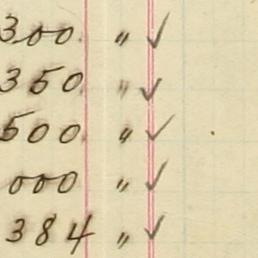 300 " ✓
350 " ✓
500 " ✓
000 " ✓
384 " ✓